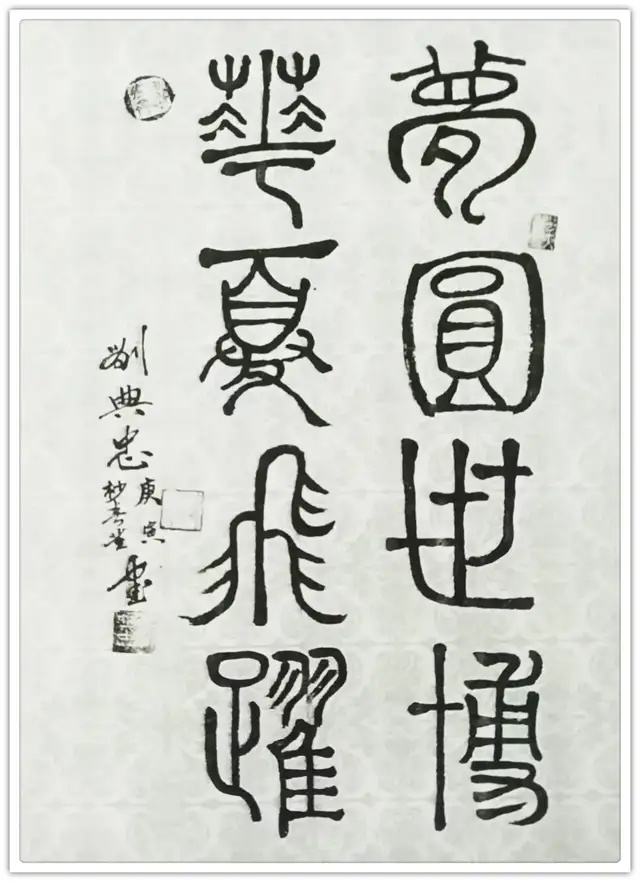 夢圓世博
華夏飛躍
劉典忠
庚寅
書